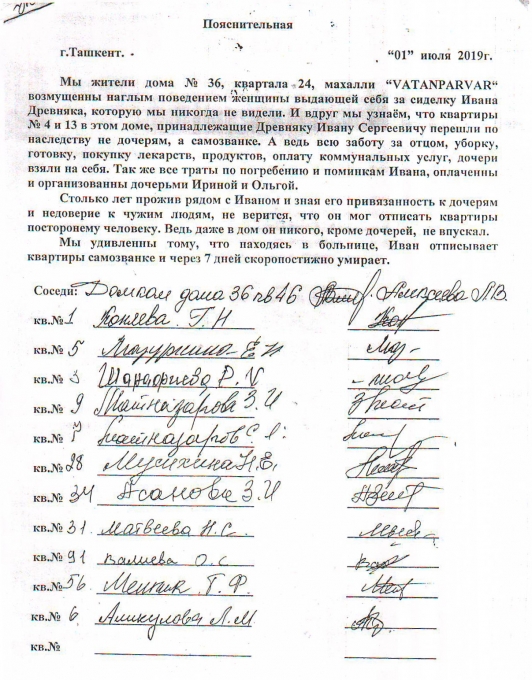 Пояснительная
г.Ташкент. “01” июля 2019г.
Мы жители дома № 36, квартала 24, махалли “VATANPARVAR“
возмущенны наглым поведением женщины выдающей себя за сиделку Ивана
Древняка, которую мы никогда не видели. И вдруг мы узнаём, что квартиры
№ 4 и 13 в этом доме, принадлежащие Древняку Ивану Сергеевичу перешли по
наследству не дочерям, а самозванке. А ведь всю заботу за отцом, уборку,
готовку, покупку лекарств, продуктов, оплату коммунальных услуг, дочери
взяли на себя. Так же все траты по погребению и поминкам Ивана, оплаченны
и организованны дочерьми Ириной и Ольгой.
Столько лет прожив рядом с Иваном и зная его привязанность к дочерям
и недоверие к чужим людям, не верится, что он мог отписать квартиры
посторонему человеку. Ведь даже в дом он никого, кроме дочерей, не впускал.
Мы удивленны тому, что находясь в больнице, Иван отписывает
квартиры самозванке и через 7 дней скоропостижно умирает.
Соседи: Домком дома 36 кв 46 Алексеева Л.В.
кв.№ 1 Коняева Г.Н
кв.№ 5
кв.№ 3 Р.
кв.№ 9 Тайназарова З.И
кв.№ 7 Тайназаров С.
кв.№ 28 Мусихина Н.Е.
кв.№ 34 Асанова З.И
кв.№ 31. Матвеева Н.С.
кв.№ 91 Валиева О.С
кв.№ 56. Т.Ф.
кв.№ 6 Аликулова Л.М
кв.№